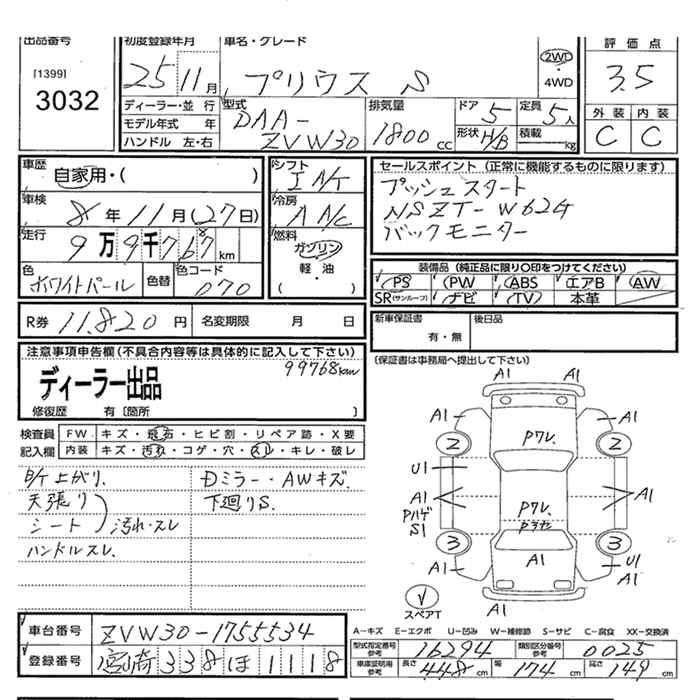 出品番号
[1399]
3032
初度登録年月
25
11月
車名・グレード
プリウス S
2WD
・
4WD
評価点
3.5
外装 内装
C C
ディーラー・並 行
モデル年式 年
ハンドル 左・右
型式
DAA-
ZVW30
排気量
1800cc
ドア 5
形状 H/B
定員 5人
積載 kg
車歴
自家用・( )
車検
8年11月(27日)
走行
9万9千768km
色
ホワイトパール
色替
色コード
070
シフト
冷房
燃料
ガソリン
軽・油
( )
セールスポイント(正常に機能するものに限ります)
プッシュスタート
NSZT-W62G
バックモニター
装備品(純正品に限り○印をつけてください)
PS PW ABS エアB AW
SR(サンルーフ) ナビ TV 本革
R券 11,820 円
名変期限 月 日
新車保証書
有・無
後日品
注意事項申告欄(不具合内容等は具体的に記入して下さい)
99768km
ディーラー出品
修復歴 有〔箇所 〕
(保証書は事務局へ提出して下さい)
検査員
記入欄
FW キズ・飛石・ヒビ割・リペア跡・X要
内装 キズ・汚れ・コゲ・穴・スレ・キレ・破レ
B/T上がり.
天張り
シート
汚れ・スレ
ハンドルスレ.
Dミラー・AWキズ.
下廻りS.
A1
A1
A1 A1
A1 A1
2 2
Pワレ.
U1
A1
Pハゲ
S1
A1
Pワレ.
3 3
A1
A1
U1
A1
A1
スペアT
車台番号
ZVW30-1755534
登録番号
宮崎338ほ1118
A-キズ E-エクボ U-凹み W-補修跡 S-サビ C-腐食 XX-交換済
型式指定番号
参考
16294
類別区分番号
参考
0025
車庫証明用
参考
長さ 448cm
幅 174cm
高さ 149cm